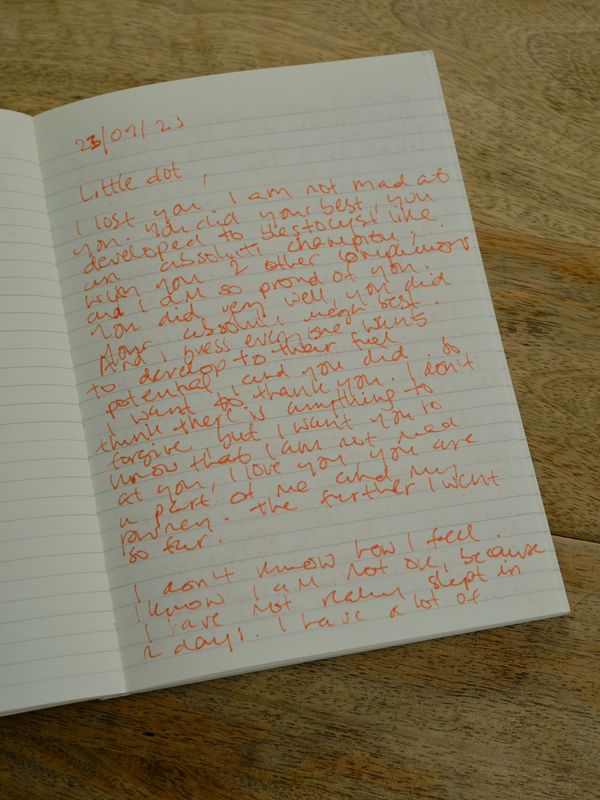 23/09/23
Little dot,
I lost you. I am not mad at
you. You did your best, you
developed to blastocyst like
an absolute champion.
With you 2 other companions
and I am so proud of you.
You did very well, you did
your absolute best.
And I guess everyone wants
to develop to their
potential, and you did so
I want to thank you. I don't
think there is anything to
forgive but I want you to
know that I am not mad
at you, I love you you are
a part of me and my
The further I went
so far.
I don't know how I feel.
I know I am not ok, because
I have not really slept in
2 days. I have a lot of